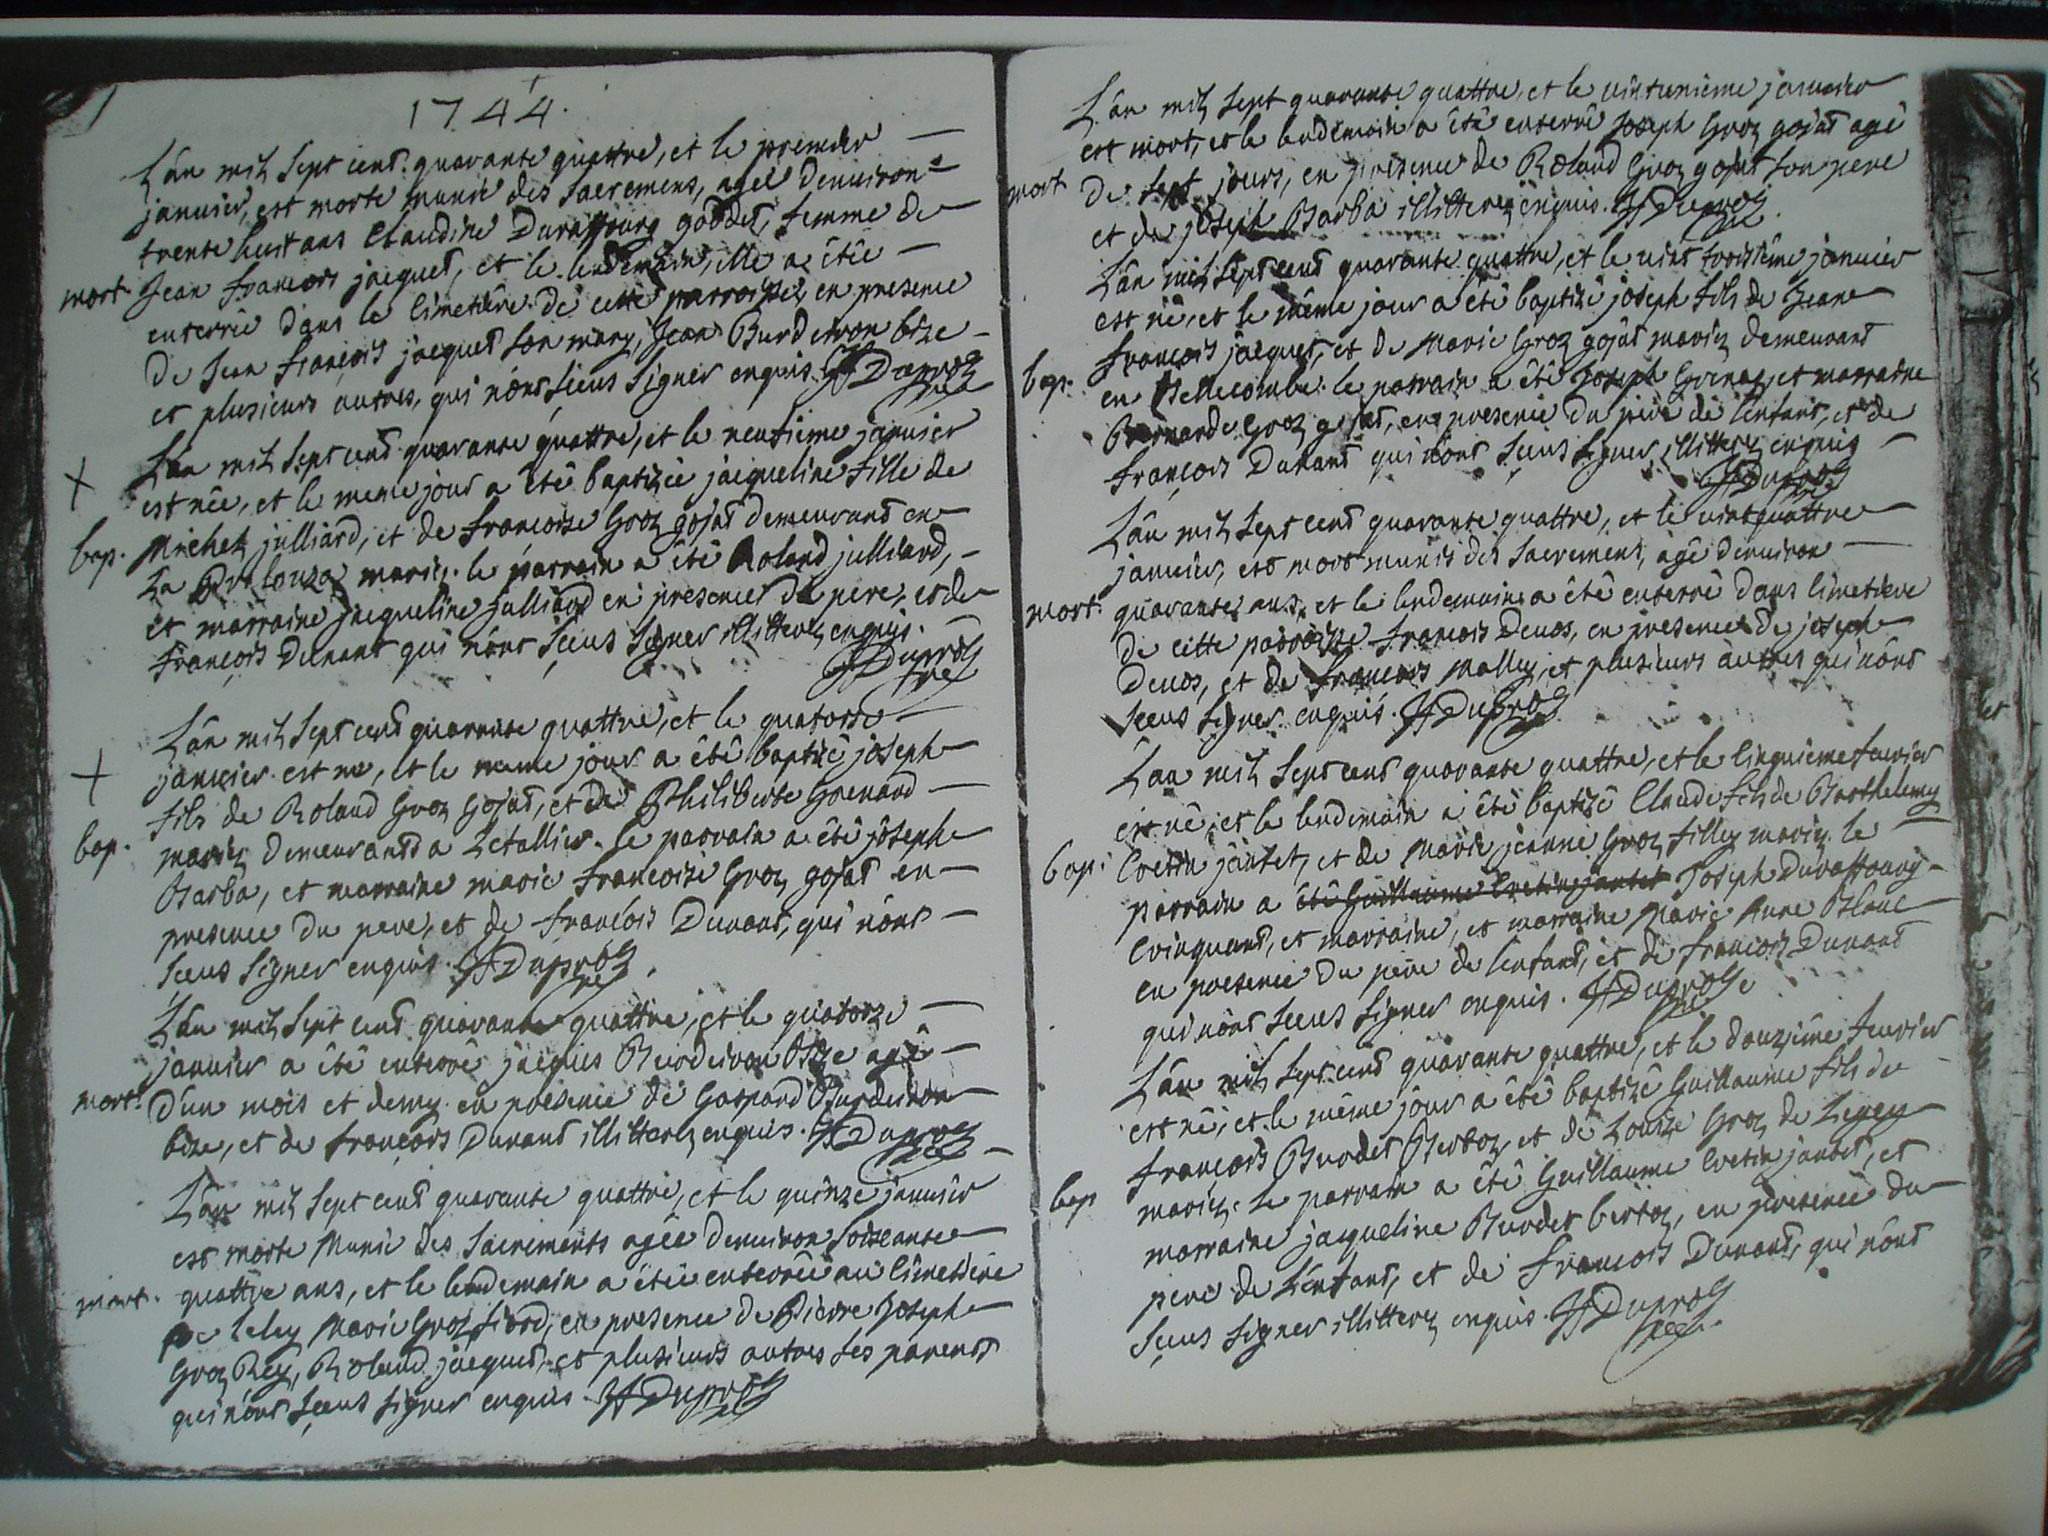 1744.
L'an mil sept cent quarante quattre, et le premier
janvier, est morte munie des sacremens, agée denviron
trente huit ans Claudine Duraffourg goddet, femme de
mort. Jean francois jacquet, et le lendemain, elle a êtée
enterrée dans le Cimetière de cette parroisse, en presence
de Jean françois jacquet son mary, Jean Burdeiron bize
et plusieurs autres, qui n'ont sceus signer enquis. JF Duproz
L'an mil sept cent quarante quattre, et le neufieme janvier
est née, et le meme jour a êtê baptizée jacqueline fille de
bap. Michel julliard, et de françoise Groz gojat demeurant en
La mariez. le parrain a êtê Roland julliard,
et marraine jacqueline julliard en presence du pere, et de
françois Dunant qui n'ont sceus signer illitterez enquis.
JF Duproz
L'an mil sept cent quarante quattre, et le quatorze
janvier est né, et le meme jour a êtê baptizê joseph
fils de Roland Groz Gojat, et de Philiberte Grenard
bap. mariez demeurants a Letallier. le parrain a êtê joseph
Barba, et marraine marie françoise Groz gojat en
presence du pere, et de francois Dunant, qui n'ont
sceus signer enquis. JF Duproz
L'an mil sept cent quarante quattre, et le quatorze
janvier a êtê enterrê jacques Burdeiron Bize agê
mort. d'un mois et demy en présence de Gaspard Burdeiron
bize, et de françois Dunant illitterez enquis. JF Duproz
L'an mil sept cent quarante quattre, et le quinze janvier
est morte Munie des Sacrements agée denviron soiseante
mort. quattre ans, et le lendemain a êtée enterrée au Cimetière
de Leley Marie Groz fiord, en presence de Pierre Joseph
Groz Rey, Roland jacquet, et plusieurs autres ses parents
qui n'ont sceus signer enquis. JF Duproz
L'an mil sept quarante quattre, et le vintunième janvier
est mort, et le lendemain a êtê enterrê Joseph Groz gojat agé
mort de sept jours, en présence de Roland Groz gojat son pere
et de joseph Barba illitterez enquis. JF Duproz
L'an mil sept cent quarante quattre, et le vint troisième janvier
est nê, et le même jour a êtê baptizê joseph fils de Jean
françois jacquet, et de Marie Groz gojat mariez demeurant
bap. en Bellecombe. le parrain a êtê Joseph Grenaz et marraine
Bernarde Groz gojat, en presence du père de l'enfant, et de
françois Dunant qui n'ont sceus signer illitterez enquis
JF Duproz
L'an mil sept cent quarante quattre, et le vintquattre
janvier, est mort munis des sacremens, âgê denviron
mort. quarante ans, et le lendemain a êtê enterrê dans Cimetiere
de cette paroisse françois Devos, en presence de joseph
Devos, et de françois Malley, et plusieurs autres qui n'ont
sceus signer enquis. JF Duproz
L'an mil sept cent quarante quattre, et le Cinquieme fevrier
est nê, et le lendemain a êtê baptizê Claude fils de Barthelemy
bap. Cretin jantet, et de Marie jeanne Groz filley mariez. le
parrain a êtê Guillaume Cretin jantet Joseph Duraffourg
Crinquant, et marraine, et marraine Marie Anne Blanc
en presence du père de l'enfant, et de françois Dunant
qui n'ont sceus signer enquis. JF Duproz
L'an mil sept cent quarante quattre, et le douzième fevrier
est nê, et le même jour a êtê baptizê Guillaume fils de
françois Burdet Bertoz, et de Louize Groz de Leley
bap mariez. le parrain a êtê Guillaume Cretin jantet, et
marraine jacqueline Burdet bertoz, en présence du
pere de L'enfant, et de françois Dunant, qui n'ont
sceus signer illitterez enquis. JF Duproz